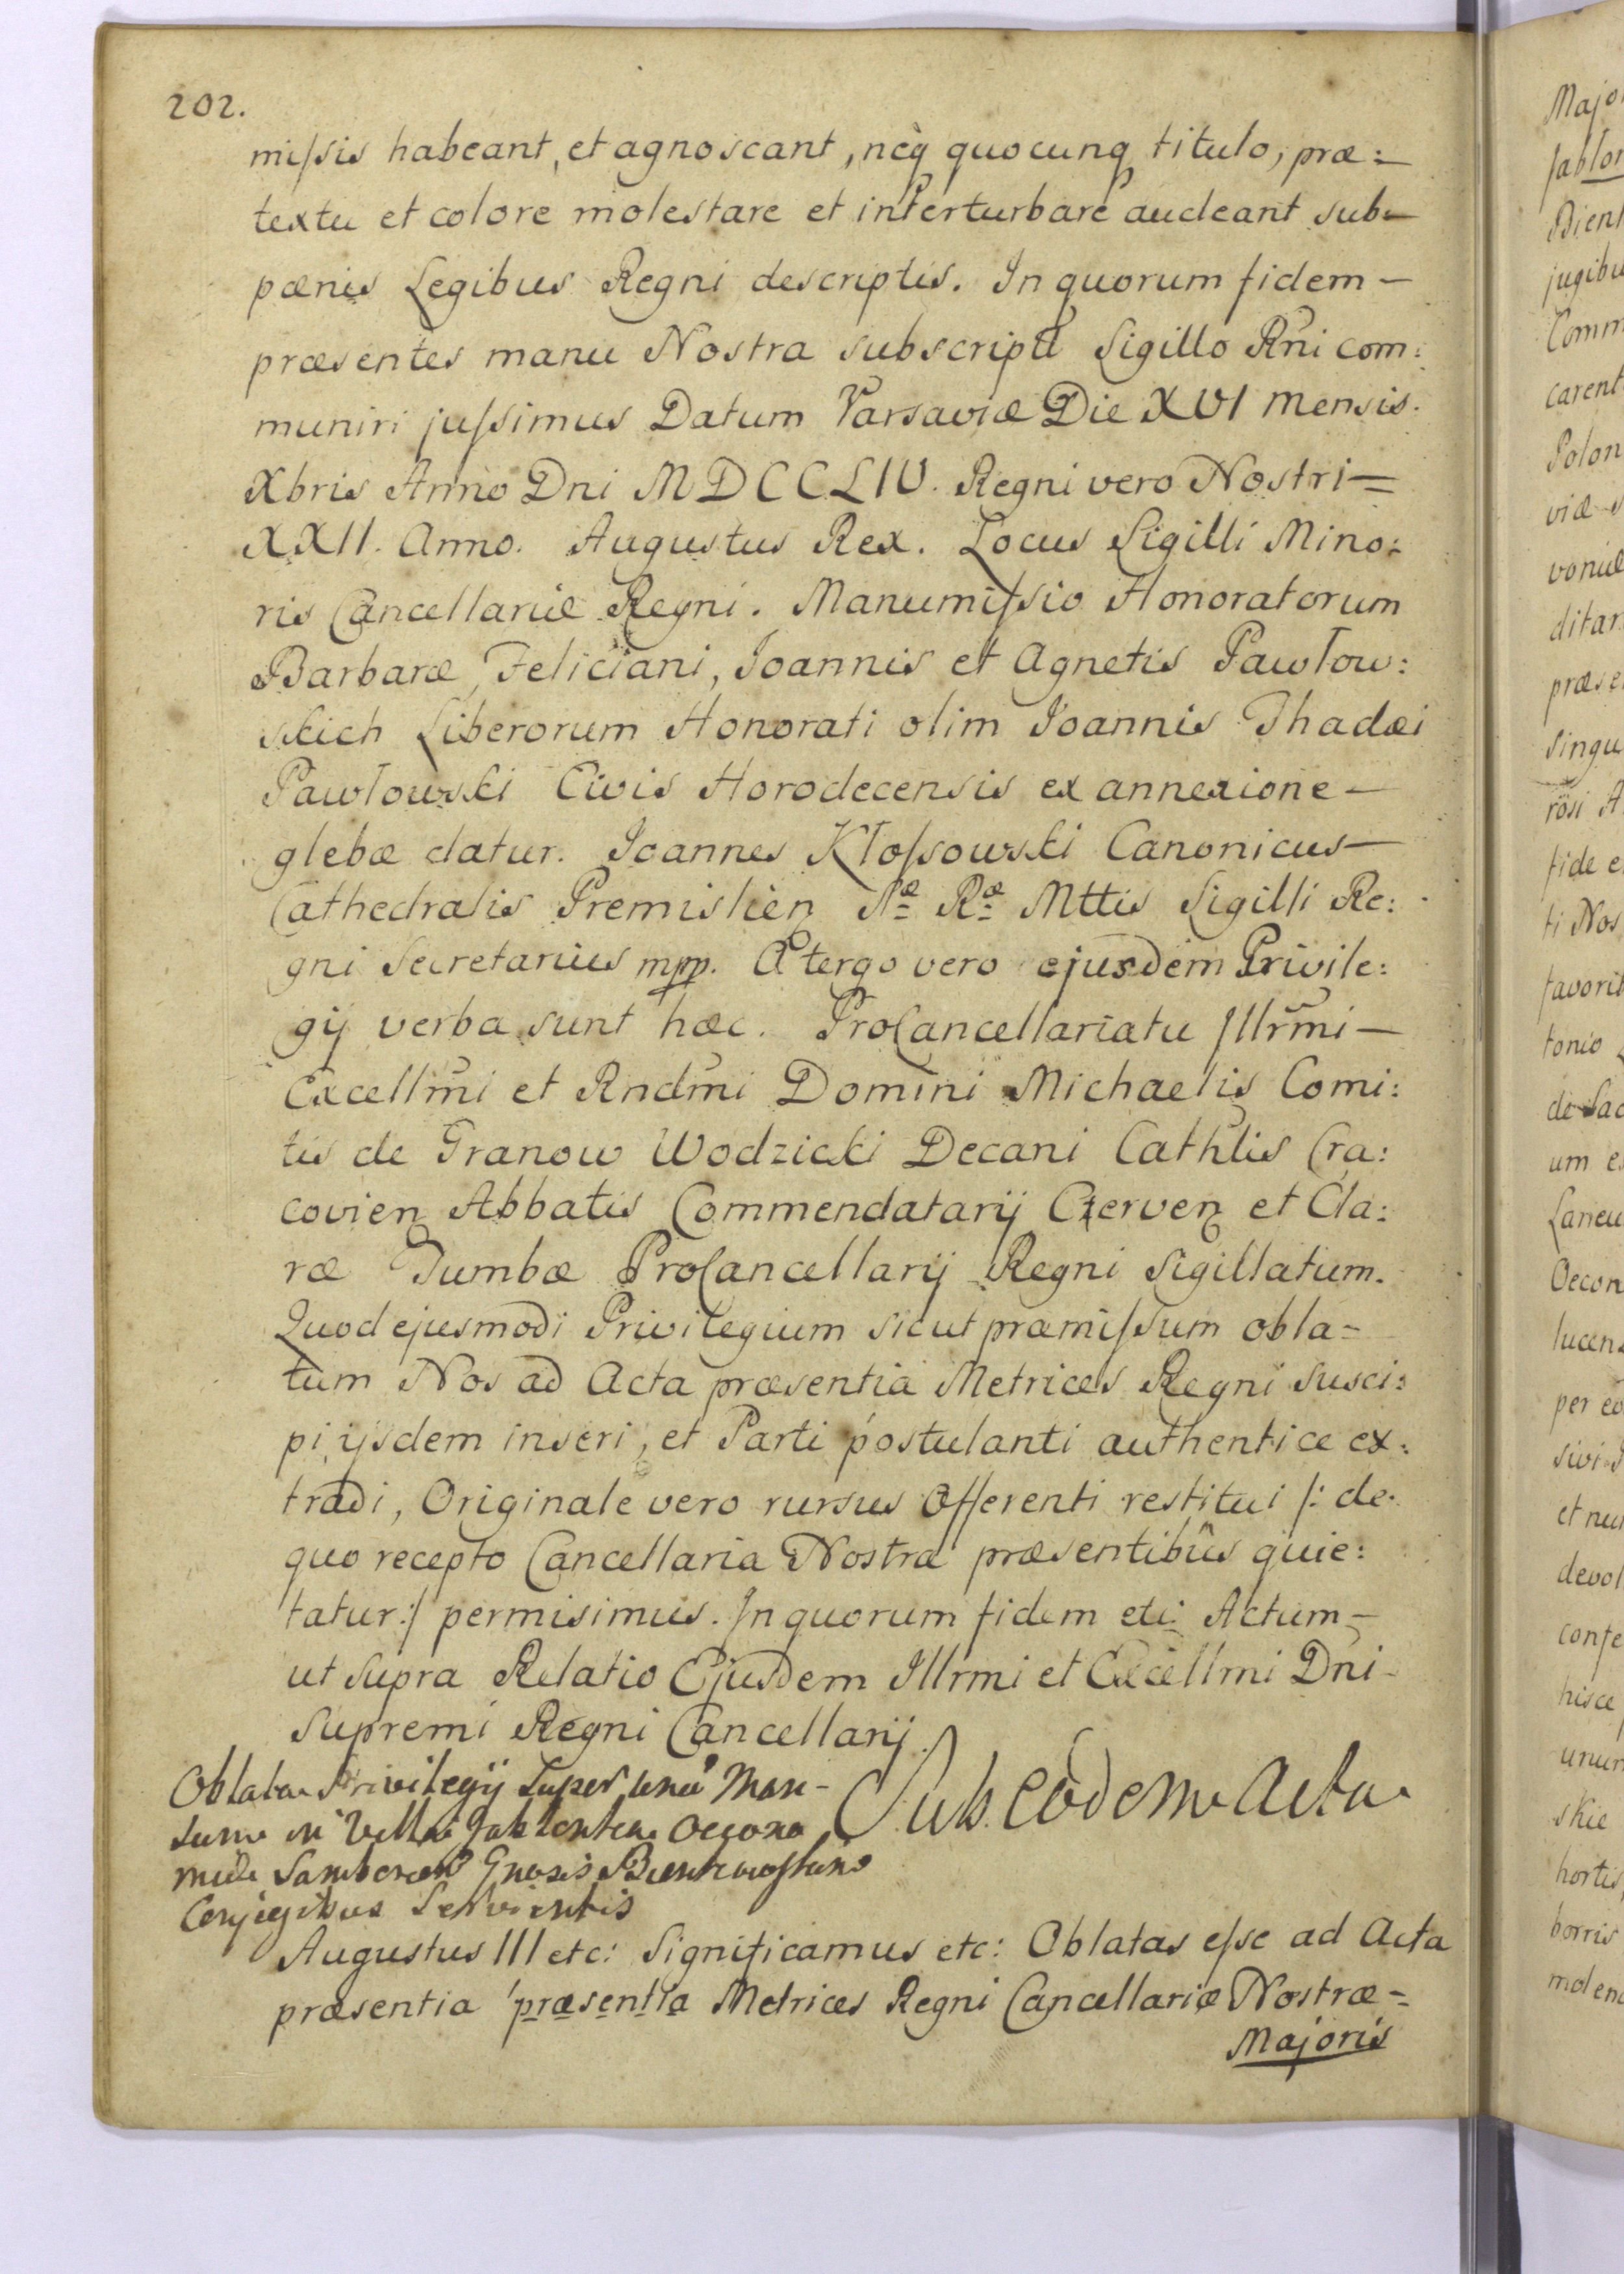 202.
missis habeant, et agnoscant, neq̀ quocunq titulo, præ:
textu et colore molestare et interturbare audeant sub
pænis Legibus Regni descriptis. In quorum fidem –
præsentes manu Nostra subscriptâ Sigillo Rñi com:
muniri jussimus Datum Varsaviæ Die XVI Mensis.
Xbris Anno Dni MDCCLIV. Regni vero Nostri =
XXII. Anno. Augustus Rex. Locus Sigilli Mino:
ris Cancellariæ Regni. Manumissio Honoratorum
Barbaræ, Feliciani, Joannis et Agnetis Pawłow:
skich Liberorum Honorati olim Joannis Thadæi
Pawłowski Civis Horodecensis ex annexione –
glebæ datur. Joannes Kłossowski Canonicus –
Cathedralis Premislien Sæ Ræ Mttis Sigilli Re:
gni Secretarius mpp. A tergo vero ejusdem Privile:
gij verba sunt hæc. ProCancellariatu Illrm̃i –
Excellm̃i et Rndm̃i Domini Michaelis Comi:
tis de Granow Wodzicki Decani Cathlis Cra:
covien Abbatis Commendatarij Czerven et Cla:
ræ Tumbæ ProCancellarij Regni Sigillatum.
Quod ejusmodi Privilegium sicut præmissum obla=
tum Nos ad Acta præsentia Metrices Regni susci:
pi, ijsdem inseri, et Parti postulanti authentice ex:
tradi, Originale vero rursus Offerenti restitui /: de
quo recepto Cancellaria Nostra præsentibus quie:
tatur :/ permisimus. In quorum fidem etc: Actum –
ut supra Relatio Ejusdem Illrmi et Excellmi Dni
Supremi Regni Cancellarij.
Oblata Privilegij super
in Villa
Conjugibus Servientis
Sub eodem Actu
Augustus III etc: Significamus etc: Oblatas esse ad Acta
præsentia præsentia Metrices Regni Cancellariæ Nostræ =
Majoris